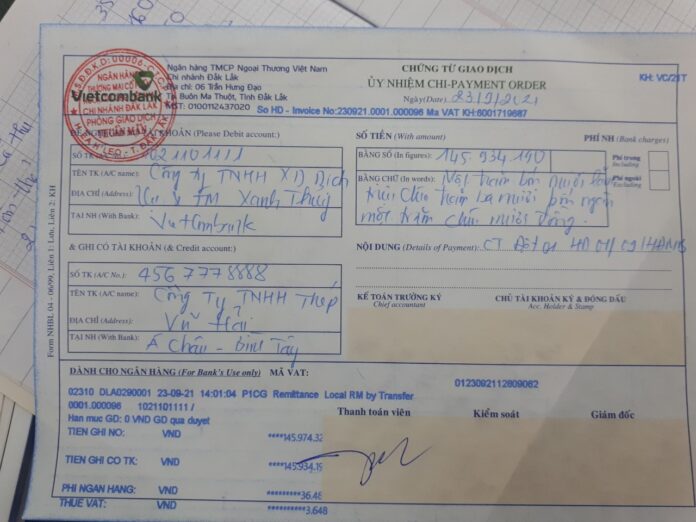 Ngân hàng TMCP Ngoại Thương Việt Nam
Chi nhánh Đắk Lắk
Địa chỉ: 06 Trần Hưng Đạo
Tp Buôn Ma Thuột, Tỉnh Đắk Lắk
MST: 0100112437020
Vietcombank
NGÂN HÀNG
THƯƠNG MẠI CỔ PHẦN
CHI NHÁNH ĐẮK LẮK
PHÒNG GIAO DỊCH
CHỨNG TỪ GIAO DỊCH
ỦY NHIỆM CHI-PAYMENT ORDER
KH: VC/21T
Ngày(Date) 23/9/2021
So HD - Invoice No:230921.0001.000096 Ma VAT KH:6001719687
TÀI KHOẢN (Please Debit account:)
SỐ TIỀN (With amount)
PHÍ NH (Bank charges)
SỐ TK 1021101111
TÊN TK (A/C name): Công ty TNHH XD Dịch
ĐỊA CHỈ (Address): Vụ & TM Xanh Thủy
TẠI NH (With Bank): Vietcombank
BẰNG SỐ (In figures): 145.934.190
Phí trong
Including
BẰNG CHỮ (In words): Một trăm bốn mươi lăm
triệu chín trăm ba mươi bốn ngàn
một trăm chín mươi đồng.
Phí ngoài
Excluding
NỘI DUNG (Details of Payment): CT Đợt 01 HĐ 01/09/HĐMB
& GHI CÓ TÀI KHOẢN (& Credit account:)
SỐ TK (A/C No.): 4567778888
TÊN TK (A/C name): Công Ty TNHH Thép
ĐỊA CHỈ (Address): Vũ Hải
TẠI NH (With Bank): Á Châu - Bình Tây
KẾ TOÁN TRƯỞNG KÝ
Chief accountant
CHỦ TÀI KHOẢN KÝ & ĐÓNG DẤU
Acc. Holder & Stamp
Form NHBL 04 - 06/99, Liên 1: Lưu, Liên 2: KH
DÀNH CHO NGÂN HÀNG (For Bank's Use only) MÃ VAT:
0123092112809062
02310 DLA0290001 23-09-21 14:01:04 P1CG Remittance Local RM by Transfer
0001.000096 1021101111 /
Han muc GD: 0 VND GD qua duyet
Thanh toán viên
Kiểm soát
Giám đốc
TIEN GHI NO: VND ****145.974.32
TIEN GHI CO TK: VND ****145.934.19
PHI NGAN HANG: VND *********36.48
THUE VAT: VND *********3.648